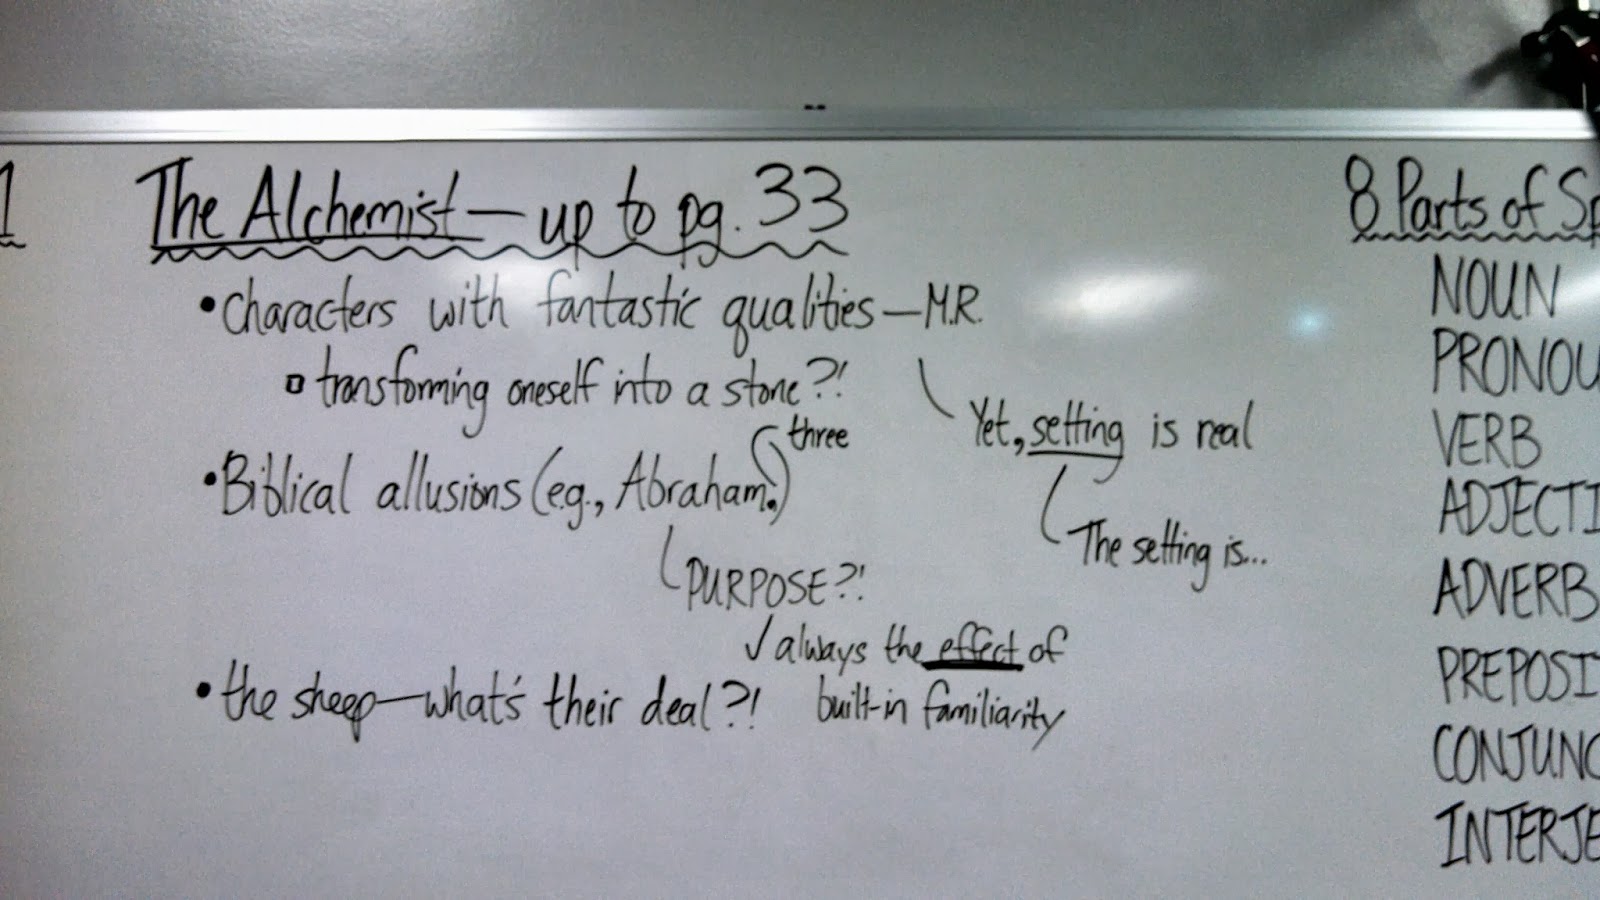 1
The Alchemist — up to pg. 33
• Characters with fantastic qualities — M.R.
▫ transforming oneself into a stone?!
Yet, setting is real
The setting is...
three
• Biblical allusions (e.g., Abraham.)
PURPOSE?!
✓ always the effect of
built-in familiarity
• the sheep — what's their deal?!
8 Parts of Sp
NOUN
PRONOU
VERB
ADJECTI
ADVERB
PREPOSI
CONJUNC
INTERJE